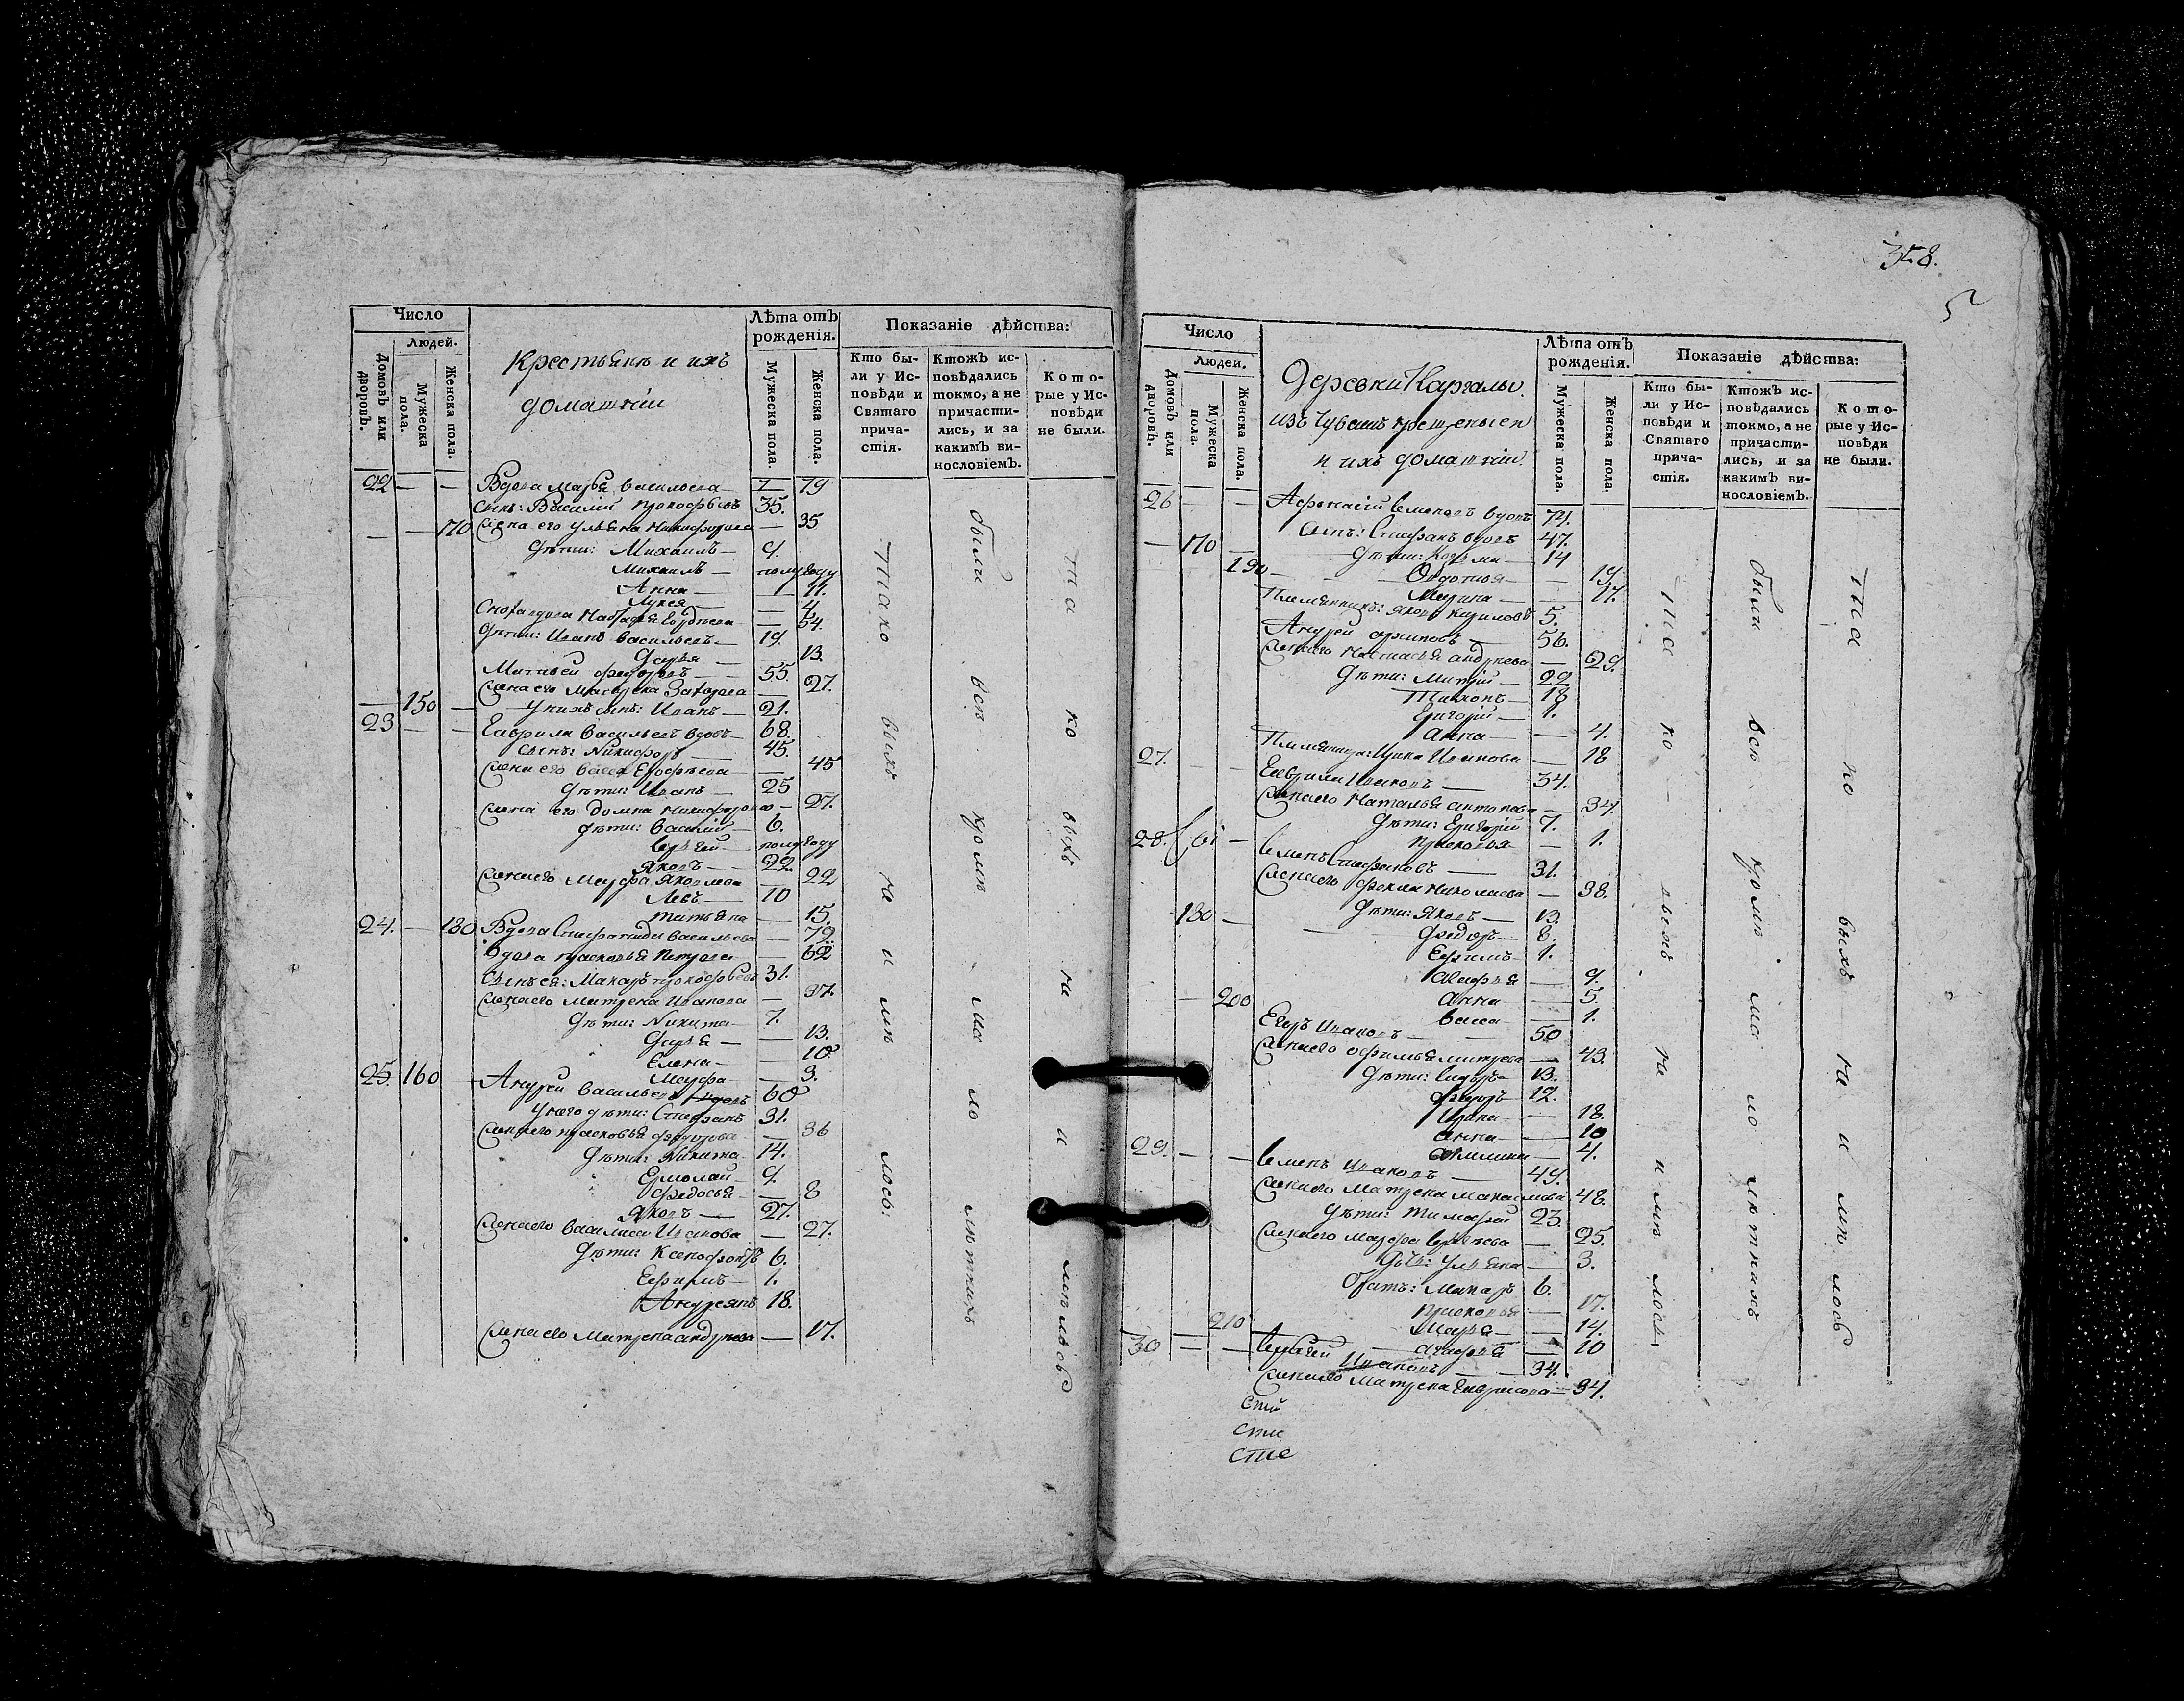 Число
Людей.
Домовъ или дворовъ.
Мужеска пола.
Женска пола.
Крестьянѣ и ихъ
домашнiи
Лѣта отъ рожденiя.
Мужеска пола.
Женска пола.
Показанiе дѣйства:
Кто бы-
ли у Ис-
повѣди и
Святаго
прича-
стiя.
Ктожъ ис-
повѣдались
токмо, а не
причасти-
лись, и за
какимъ ви-
нословiемъ.
Кото-
рые у Ис-
повѣди
не были.
22 — — Вдова Марья Васильева — 79
Сынъ: Василiй Прокофьевъ 35.
— — 170 Жена его Ульяна Никифорова — 35
Дѣти: Михаилъ — 9.
Михаилъ — полугоду
Анна — 11.
Лукея — 4.
Сноха вдова Наталья — 54.
Дѣти: Иванъ Васильевъ — 19.
Дарья — 13.
Матвей Федоровъ — 55.
Жена его Матрена Захарова — 27.
— 150 — У нихъ сынъ: Иванъ — 21.
23 — — Гаврила Васильевъ вдовъ — 68.
Сынъ: Никифоръ 45.
Жена его Васса Ерофеева — 45
Дѣти: Иванъ — 25
Жена его Домна Никифорова — 27.
Дѣти: Василiй — 6.
Сергей — полугоду
Яковъ — 22.
Жена его Марфа Яковлева — 22
Левъ — 10
Татьяна — 15.
24. — 180 Вдова Степанида Васильева — 79.
Вдова Прасковья Петрова — 62
Сынъ ея: Макаръ Прокофьевъ 31.
Жена его Матрена Иванова — 37.
Дѣти: Никита — 7.
Дарья — 13.
Елена — 10
Марфа — 3.
25. 160 — Андрей Васильевъ вдовъ 60
У него дѣти: Степанъ 31.
Жена его Прасковья Федорова — 36
Дѣти: Никита 14.
Ермолай — 9.
Федосья — 8
Яковъ — 27.
Жена его Василиса Иванова — 27.
Дѣти: Ксенофонтъ 6.
Ефимъ — 1.
Андреянъ 18.
Жена его Матрена Андреева — 17.
Таковыхъ не имѣлось:
были всѣ кромѣ малолѣтнихъ
таковыхъ не имѣлось
358.
5
Число
Людей.
Домовъ или дворовъ.
Мужеска пола.
Женска пола.
Деревни Каргалы
изъ Чувашъ крещеныен
и ихъ домашнiи
Лѣта отъ рожденiя.
Мужеска пола.
Женска пола.
Показанiе дѣйства:
Кто бы-
ли у Ис-
повѣди и
Святаго
прича-
стiя.
Ктожъ ис-
повѣдались
токмо, а не
причасти-
лись, и за
какимъ ви-
нословiемъ.
Кото-
рые у Ис-
повѣди
не были.
26 — — Афонасiй Семеновъ вдовъ 74.
Сынъ: Степанъ вдовъ 47.
— 170 — Дѣти: Козьма — 14
190 — Овдотья — 19.
Марина — 17.
Племянникъ: Яковъ Кириловъ 5.
Андрей — 56.
Жена его Настасья Андреева — 29.
Дѣти: Митрiй — 22
Тихонъ — 18
Григорiй — 1.
Анна — 4.
Племянница: Ирина Иванова — 18
27. — Гаврила Ивановъ — 34.
Жена его Наталья Антонова — 34.
Дѣти: Григорiй 7.
Прасковья — 1.
28. — Семенъ Степановъ — 31.
Жена его Фекла Николаева — 38.
Дѣти: Яковъ — 13.
180 — Федоръ — 8.
Ефимъ — 1.
Агафья — 9.
— 200 Анна — 5.
Васса — 1.
Егоръ Ивановъ — 50
Жена его Офимья Митрева — 43.
Дѣти: Сидоръ — 13.
Федоръ — 12.
Ирина — 18.
Анна — 10
Акилина — 4.
29. — — Семенъ Ивановъ — 49.
Жена его Матрена 48.
Дѣти: Тимофей 23.
Жена его Марфа Сергеева — 25.
Дочь: Ульяна — 3.
Братъ: Макаръ 6.
Прасковья — 17.
210 Марья — 14.
Агафья — 10
30 — — Сергей Ивановъ — 34.
Жена его Матрена Гаврилова — 34.
Таковыхъ не имѣлось
были всѣ кромѣ малолѣтнихъ
таковыхъ не имѣлось
сти
сти
стие